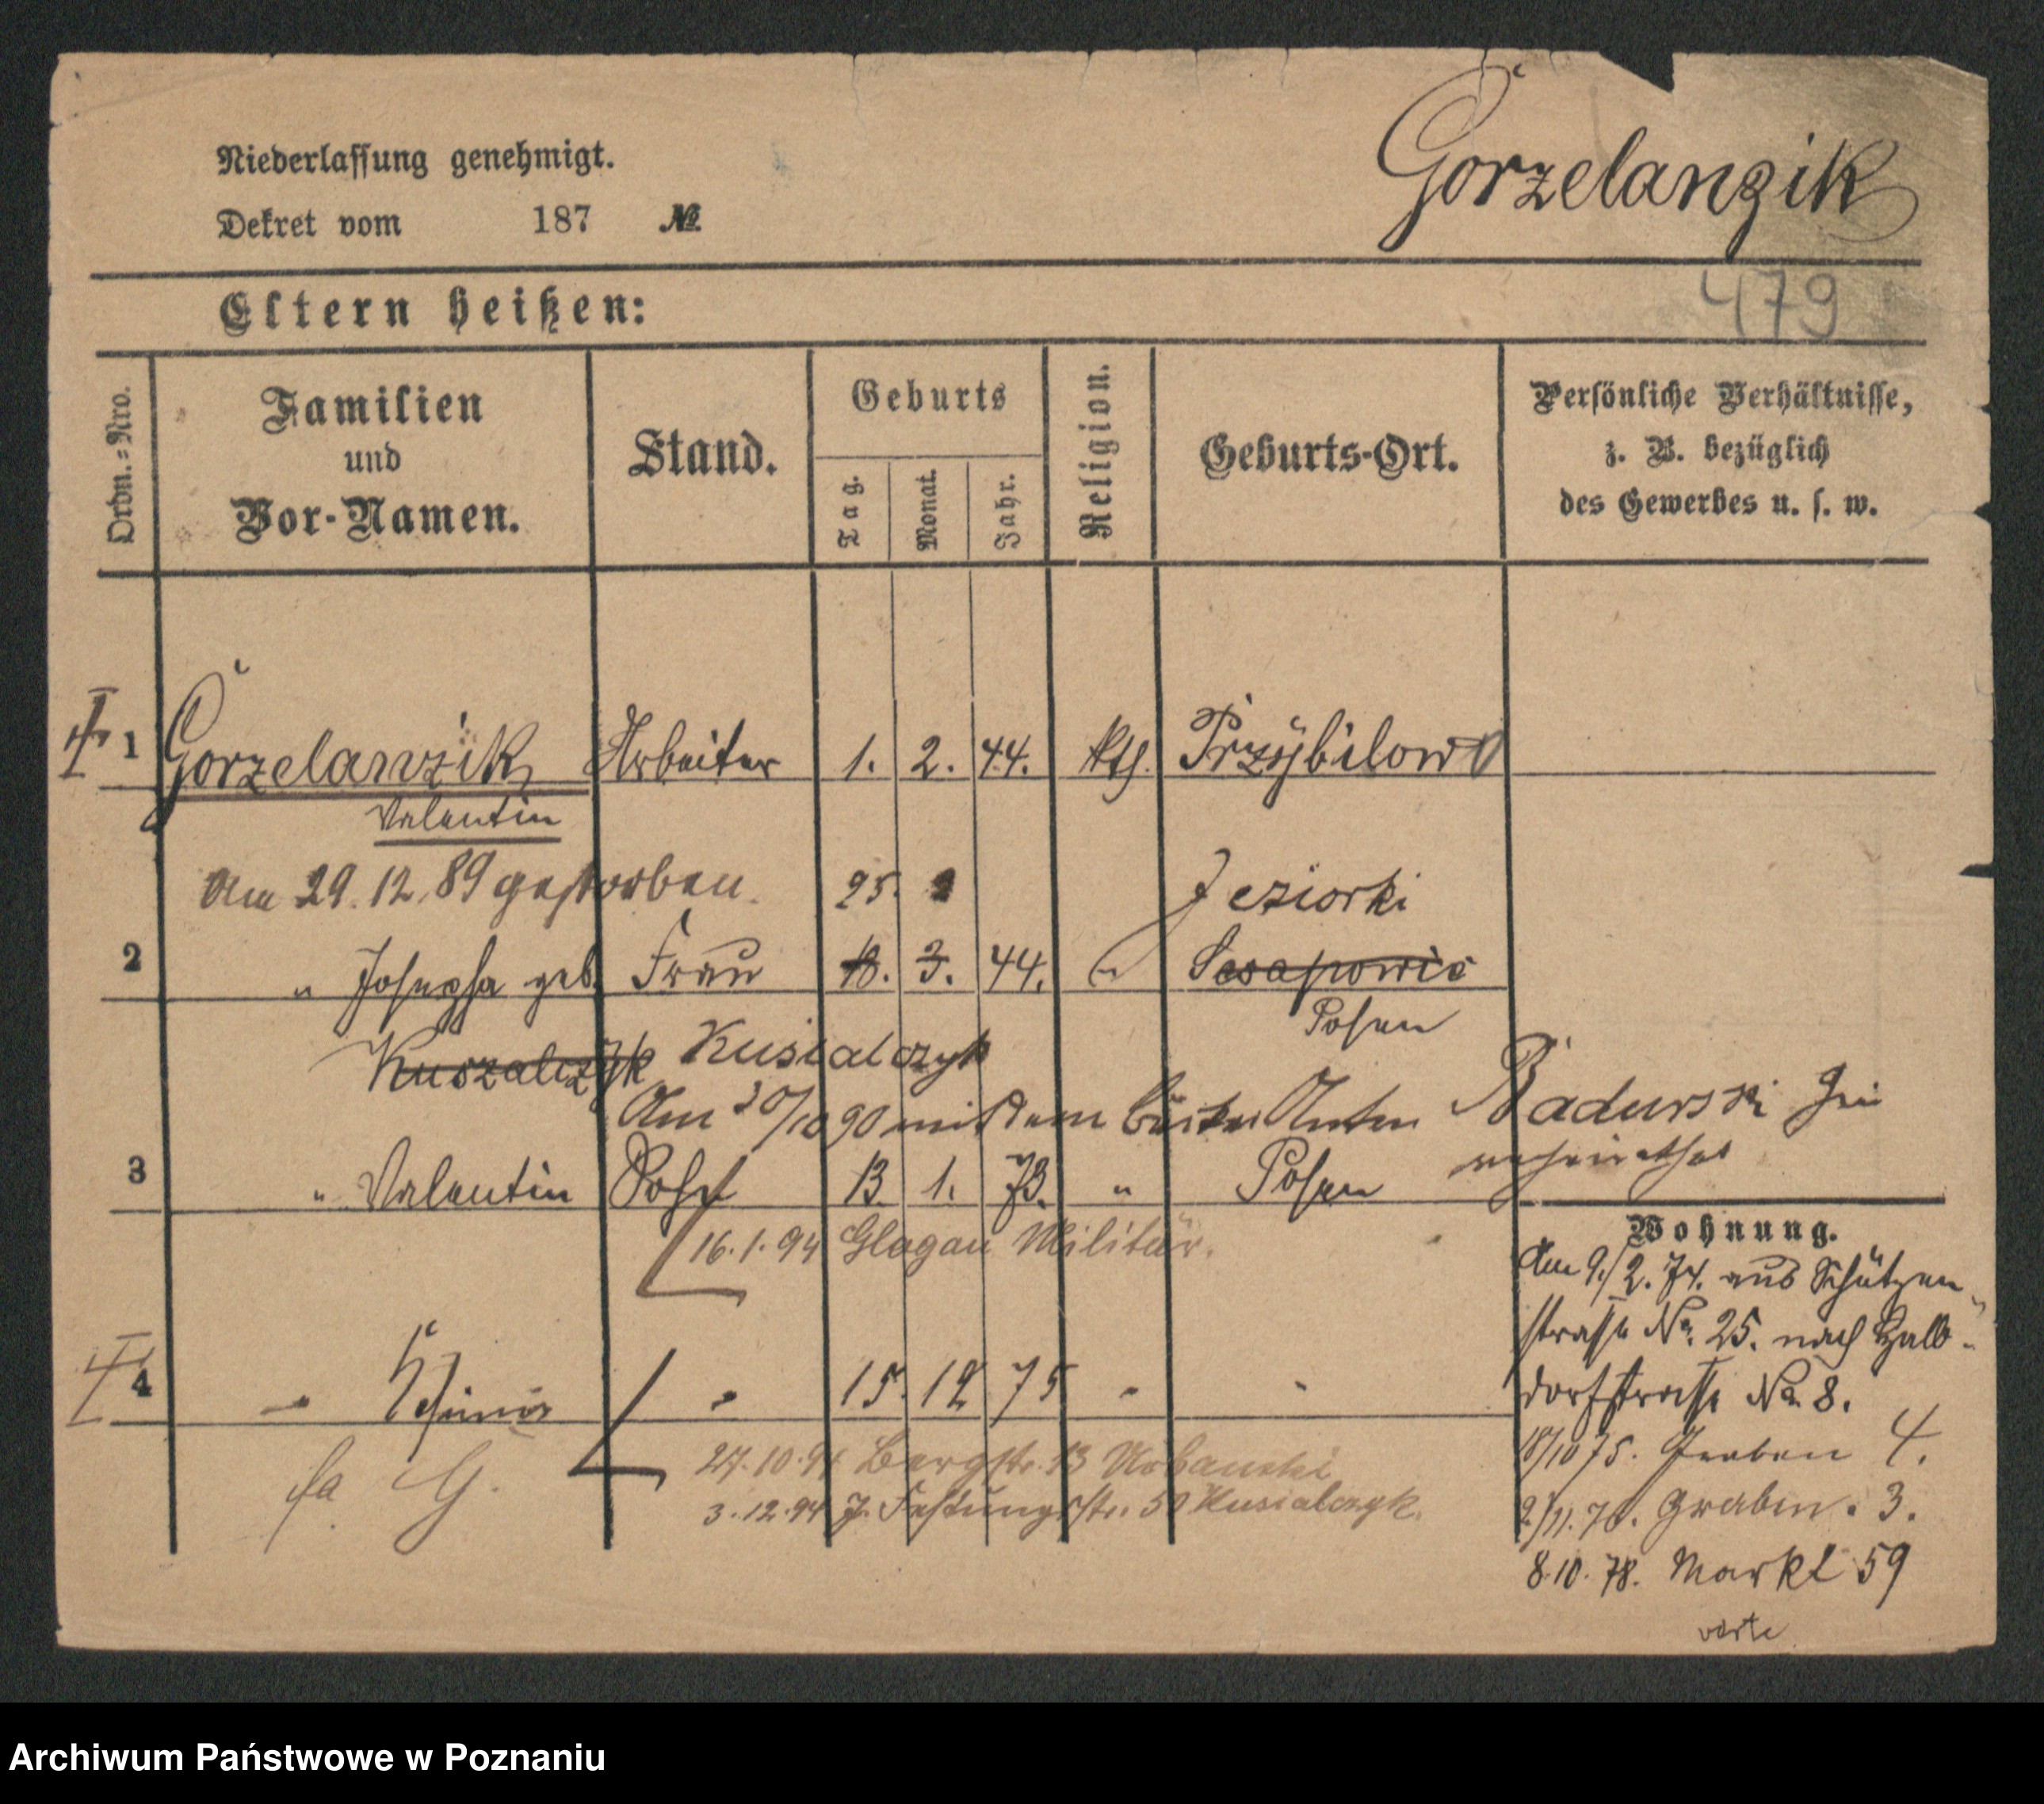 Niederlassung genehmigt.
Dekret vom 187 №
Gorzelanzik
479
Eltern heißen:
Ordn.-Nro.
Familien
und
Vor-Namen.
Stand.
Geburts
Tag.
Monat.
Jahr.
Religion.
Geburts-Ort.
Persönliche Verhältnisse,
z. B. bezüglich
des Gewerbes u. s. w.
1 Gorzelanzik Arbeiter 1. 2. 44. kth. Przybilowo
Valentin
Am 29.12.89 gestorben. 25. Jeziorki
2 " Josepha geb. Frau 18. 3. 44. " 
Posen
Kuszalczyk Kusialczyk
Am 30/10 90 mit dem Anton Badurski
verheirathet
3 " Valentin Sohn 13. 1. 73. " Posen
16.1.94 Glogau Militär.
Wohnung.
Am 9./2. 74. aus Schützen-
strasse No. 25. nach Halb-
dorfstrasse No. 8.
4 " " 15. 12 75 " "
18/10 75. Graben 4.
G.
27.10.91 Bergstr. 13 Urbanski
3.12.94 Festungsstr. Kusialczyk.
2./11. 76. Graben. 3.
8.10.78. Markt 59
verte
Archiwum Państwowe w Poznaniu